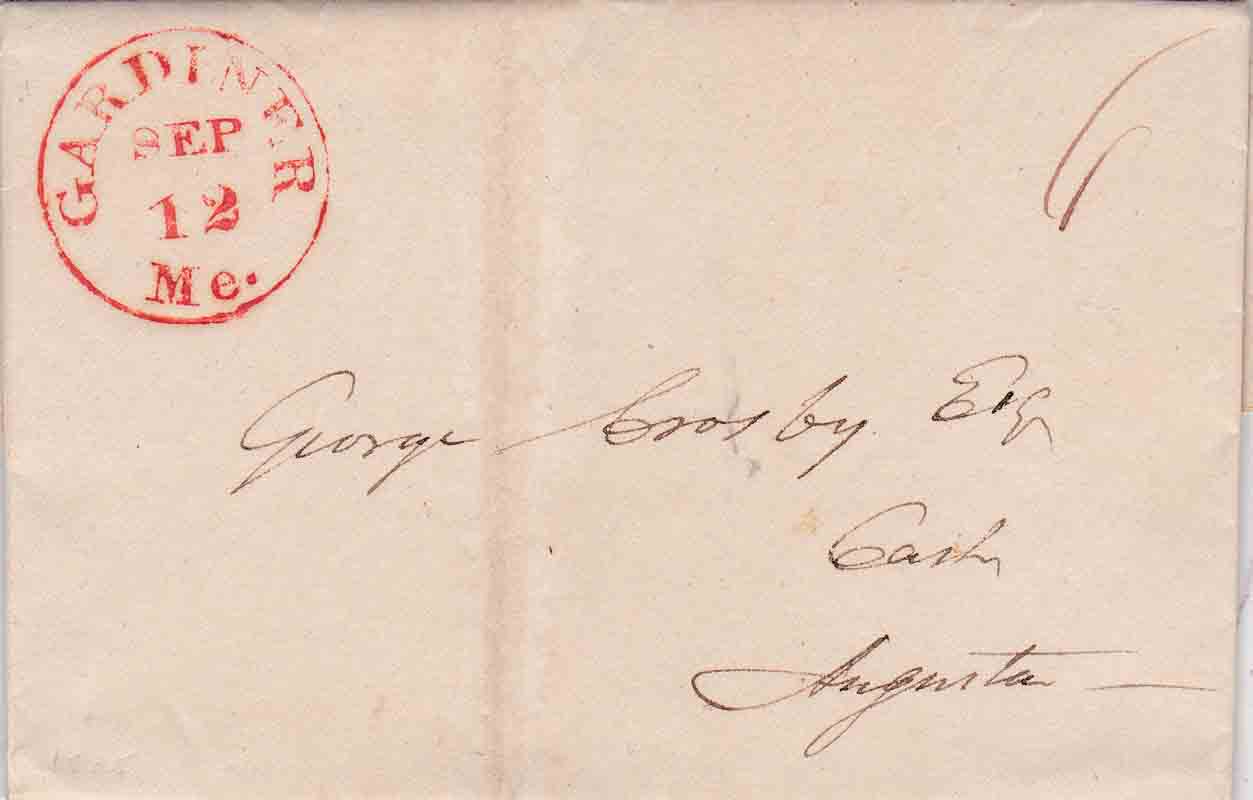 GARDINER
SEP
12
Me.
6
George Crosby Esq
Cash
Augusta